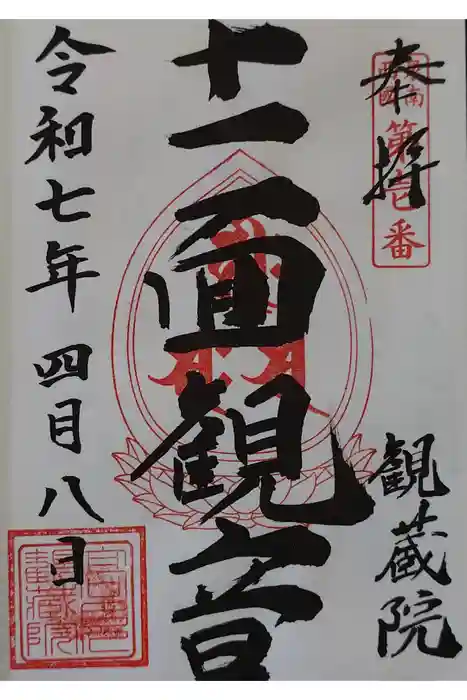 奉拝
第壱番
十一面観音
観蔵院
令和七年四月八日
観蔵院